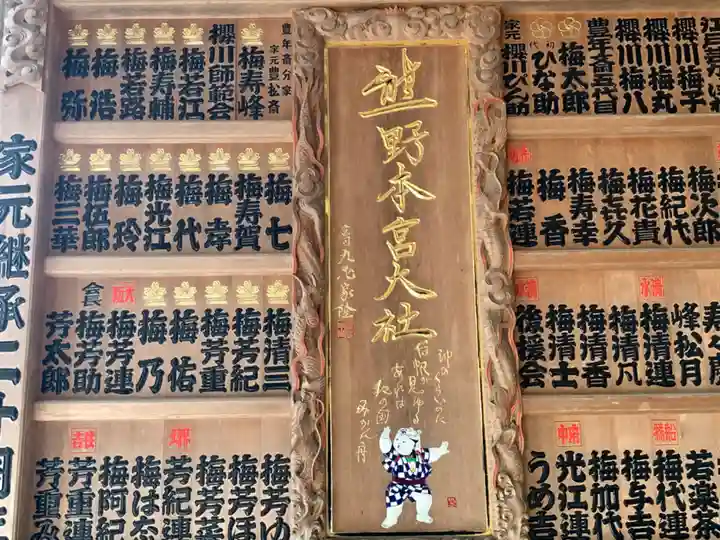 熊野本宮大社
豊年斎分家
家元豊松斎
梅寿峰
櫻川師範会
梅若江
梅寿輔
梅若路
梅浩
梅弥
梅七
梅寿賀
梅幸
梅代
梅光江
梅玲
梅伍郎
梅三華
梅清三
梅芳紀
梅芳重
梅佑
梅乃
梅芳連
梅芳助
芳太郎
芳紀連
梅阿紀
芳重連
芳重み
家元継承二十周
櫻川梅子
櫻川梅丸
櫻川梅八
豊年斎五代目
梅太郎
初代
ひな助
家元
櫻川ぴん助
梅次郎
梅紀代
梅花貴
梅㐂久
梅寿幸
梅香
梅若連
峰松月
梅清連
梅清凡
梅清香
梅清士
後援会
若楽茶
梅代連
梅与吉
梅加代
光江連
うめ吉